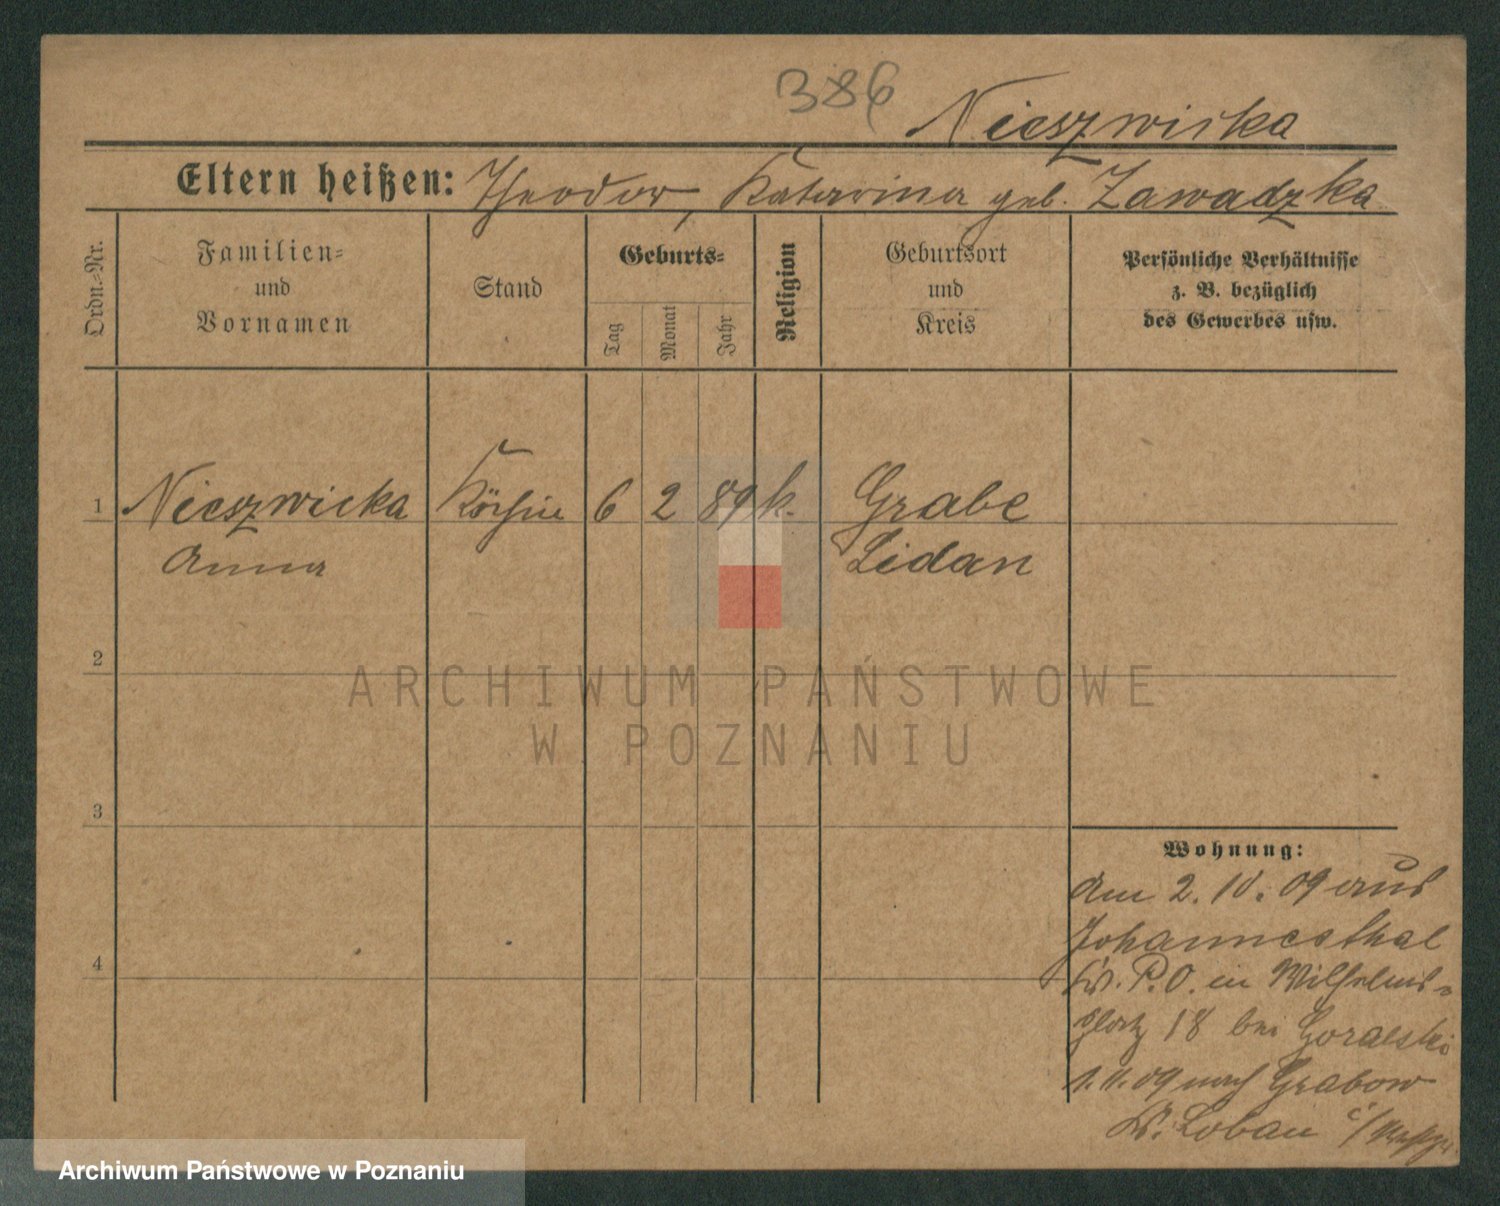 386
Nieszwicka
Eltern heißen: Theodor, Katarina geb. Zawadzka
Ordn.-Nr.
Familien-
und
Vornamen
Stand
Geburts-
Tag
Monat
Jahr
Religion
Geburtsort
und
Kreis
Persönliche Verhältnisse
z. B. bezüglich
des Gewerbes usw.
1 Nieszwicka Köchin 6 2 89 k. Grabe
Anna
2
3
4
Wohnung:
Am 2. 10. 09 aus
Johannesthal
Kr. P.O. in Wilhelms-
platz 18 bei Goralski
1.11.09 nach Grabow
Kr. Löbau
ARCHIWUM PAŃSTWOWE
W POZNANIU
Archiwum Państwowe w Poznaniu